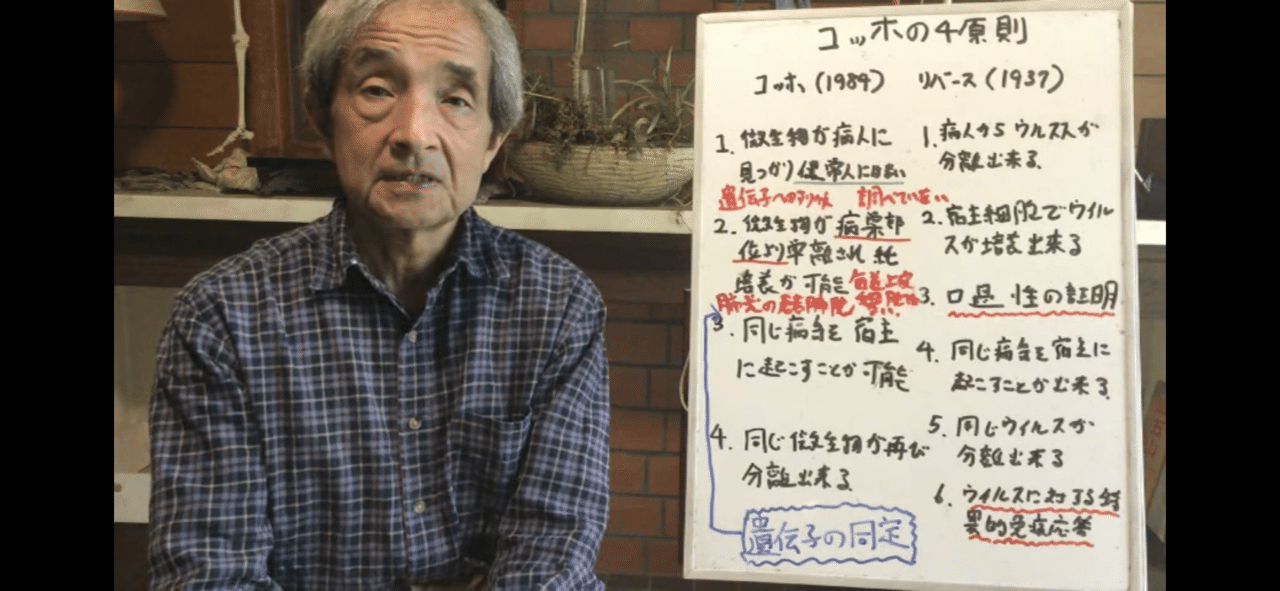 コッホの4原則
コッホ (1984)
1. 微生物が病人に
見つかり健常人にはない
遺伝子へのすりかえ 調べていない
2. 微生物が病巣部
位より単離され純
培養が可能
肺炎の
3. 同じ病気を宿主
に起こすことが可能
4. 同じ微生物が再び
分離出来る
遺伝子の同定
リバース (1937)
1. 病人からウルスが
分離出来る
2. 宿主細胞でウイル
スが培養出来る
3. 口過性の証明
4. 同じ病気を宿主に
起こすことが出来る
5. 同じウイルスが
分離出来る
6. ウイルスに対する特
異的免疫応答